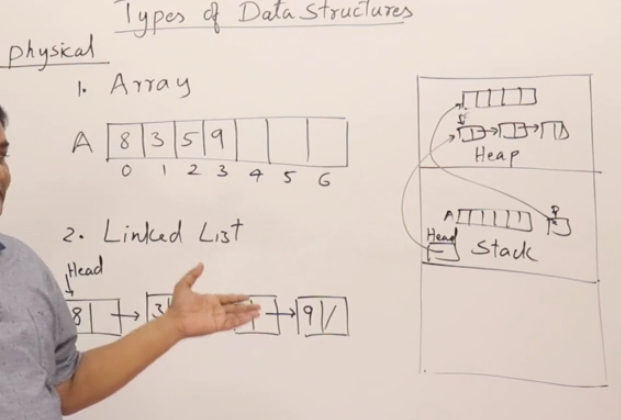 Types of Data Structures
physical
1. Array
A 8 3 5 9
0 1 2 3 4 5 6
2. Linked List
Head
8 3 9 /
Heap
A P
Head
Stack